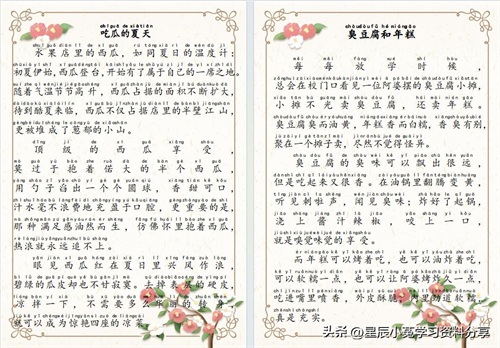 吃瓜的夏天
水果店里的西瓜，如同夏日的温度计：
初夏伊始，西瓜登台，开始有了属于自己的一席之地。
随着气温节节高升，西瓜占据的面积不断扩大，
待到酷夏来临，西瓜不仅占据店里的半壁江山，
更被堆成了葱郁的小山。
顶级的西瓜享受
莫过于抱着偌大的半个西瓜
用勺子舀出一个个圆球，香甜可口，
汁水毫不浪费地充盈于口腔，更重要的是
那种满足感油然而生，仿佛怀里抱着西瓜，
热浪就永远追不上。
眼见西瓜红在夏日里兴风作浪，
碧绿的瓜皮却也不甘寂寞。去掉表层的硬皮，
凉拌一下，不需要多么华丽的转身，
就可以成为惊艳四座的凉菜。
臭豆腐和年糕
每每放学时候
总会在校门口看见一位阿婆摆的臭豆腐小摊，
小摊不光卖臭豆腐，还卖年糕。
臭豆腐臭而油黄，年糕香而白糯，香臭有别，
聚在一个摊子卖，尽然不觉得怪异。
臭豆腐的臭味可以飘出很远
但是吃起来又很香。在油锅里翻腾变黄，
听见刺啦声，闻见臭味；炸好了起锅，
浇上酱汁辣椒，咬上一口
就是嗅觉味觉的享受。
而年糕可以烤着吃，也可以油炸着吃，
可以软糯一点，也可以让阿婆烤炸久一点，
吃进嘴里喷香，外皮酥脆，内里劲道软糯，
真是充实。
头条@星辰小苑学习资料分享